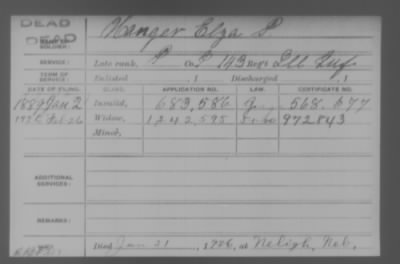 DEAD
DEAD
NAME OF SOLDIER: Hanger Elza P
SERVICE: Late rank, P Co. 143 Reg't Ill Inf
TERM OF SERVICE: Enlisted , 1 Discharged , 1
DATE OF FILING. CLASS. APPLICATION NO. LAW. CERTIFICATE NO.
1889 Jan 2 Invalid, 683,586 G 568.677
Feb 26 Widow, 1242,595 972843
Minor,
ADDITIONAL SERVICES:
REMARKS:
Died Jan 31 , 1926, at Neligh, Neb.